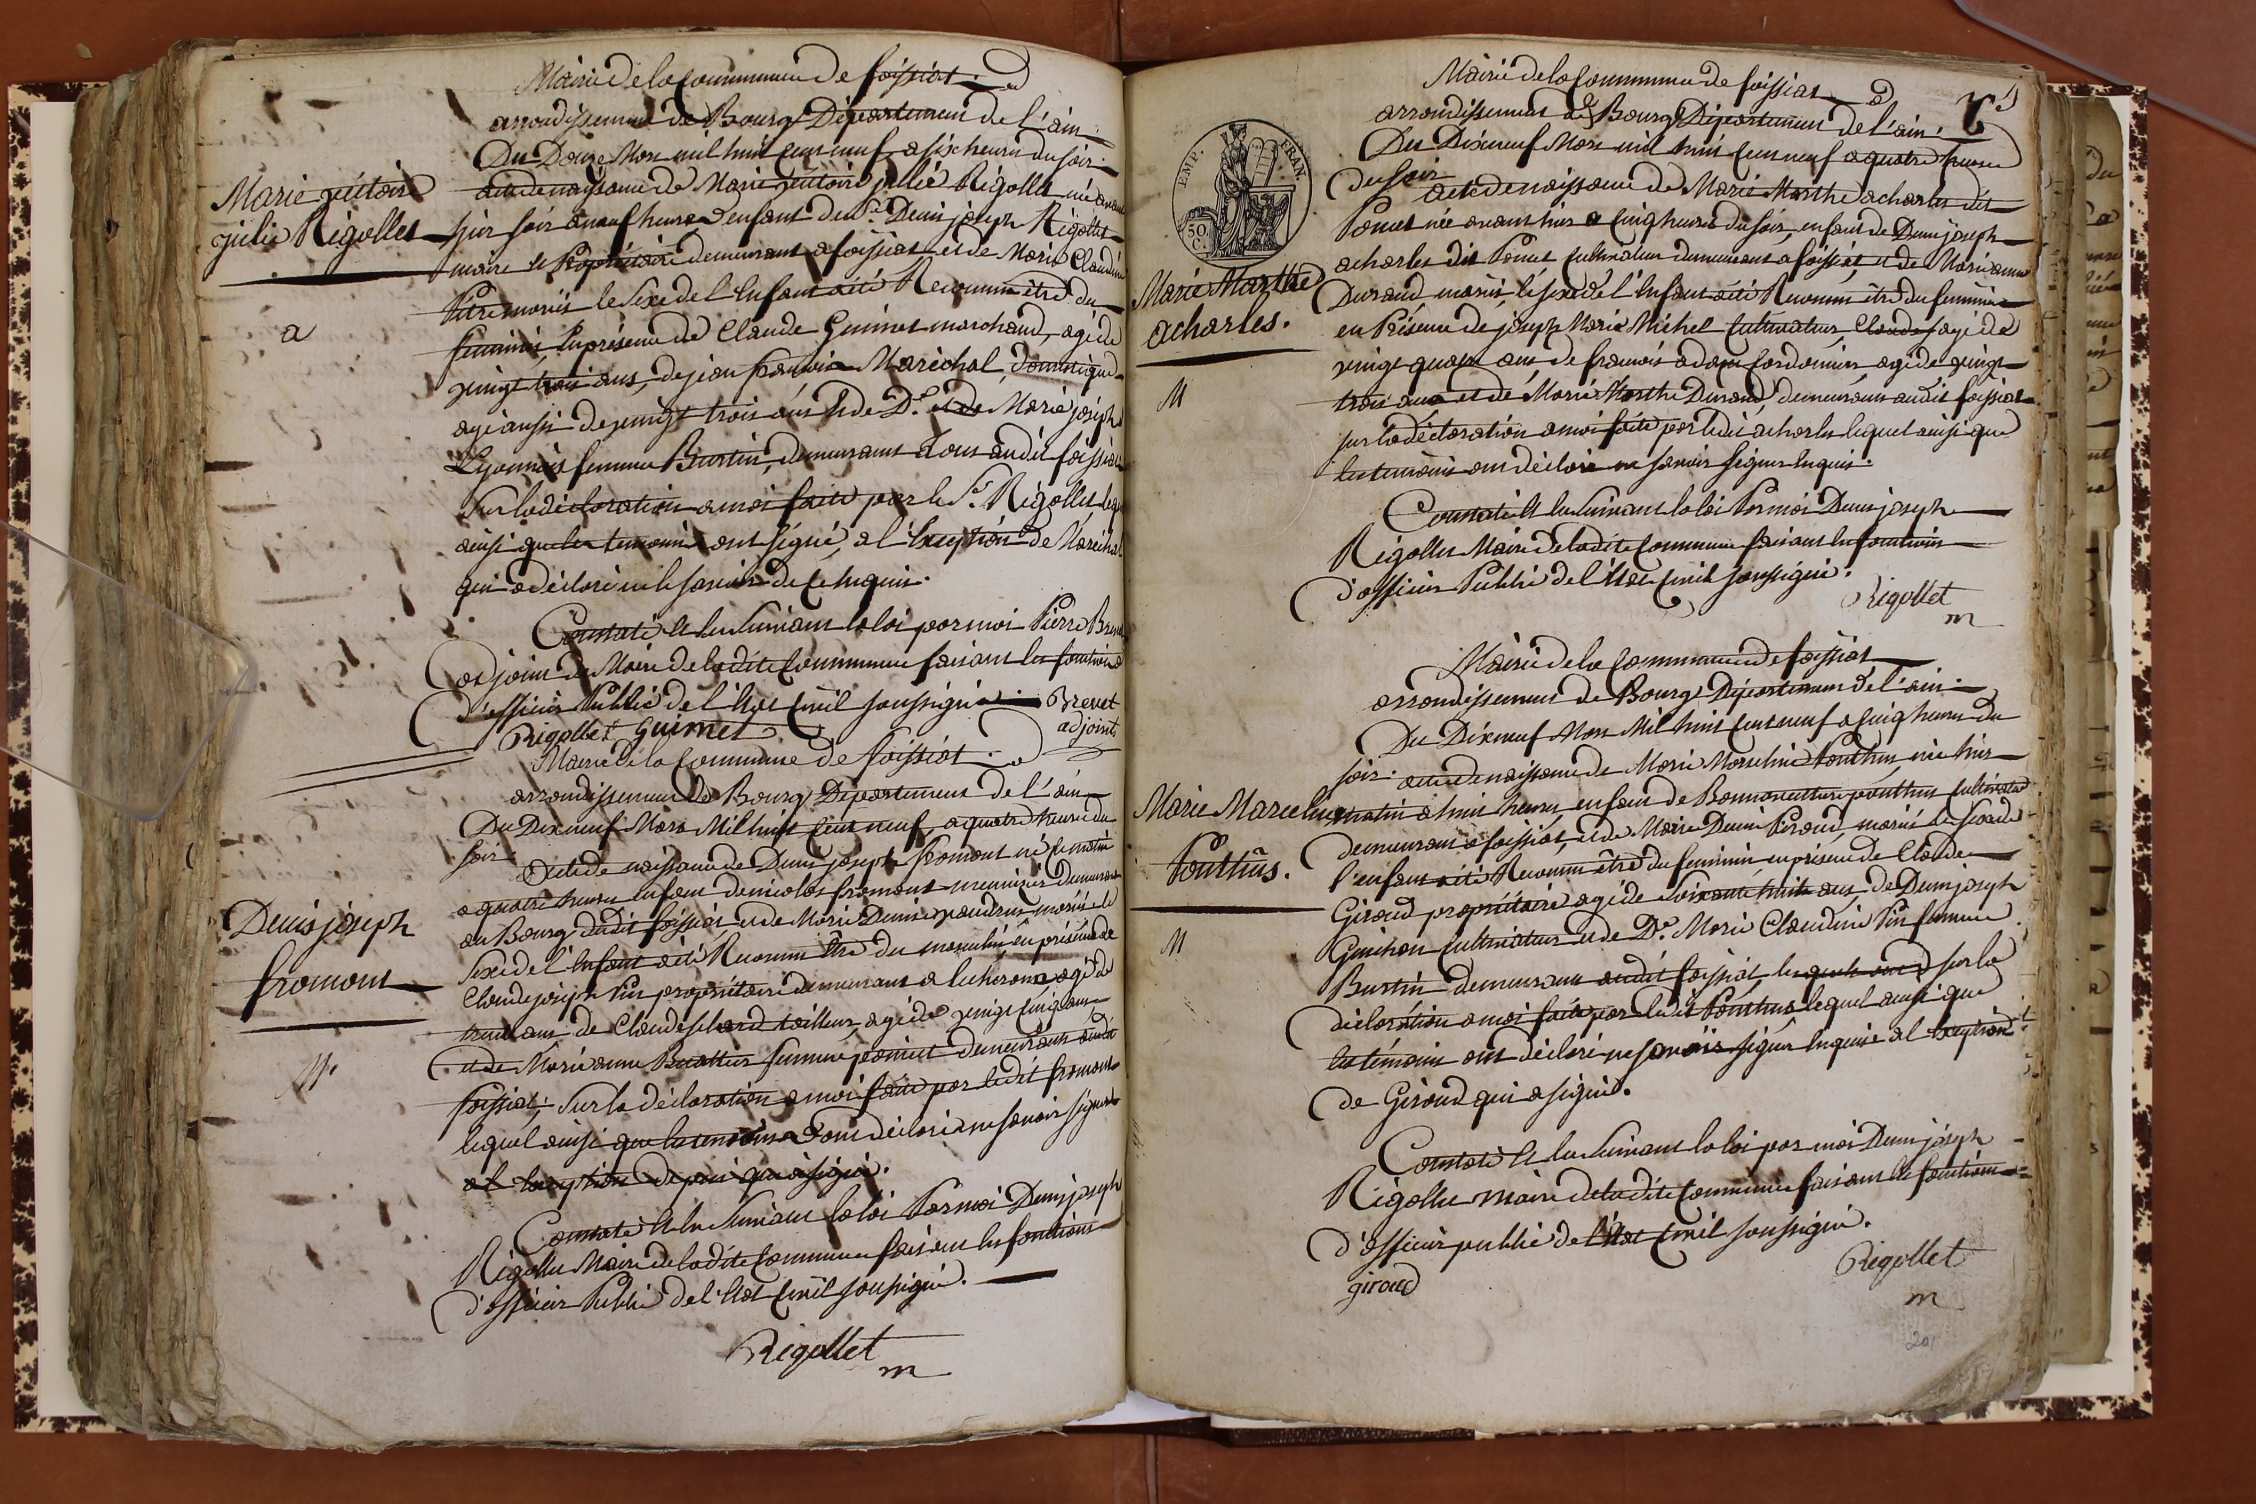 Mairie de la Commune de foissiat.
arrondissement de Bourg Département de l'ain.
Du Douze Mars mil huit cent neuf a six heures du soir.
acte de naissance de Marie julie Rigollet née
Marie
julie Rigollet
hier soir a neuf heures, enfant de Sr. Denis joseph Rigollet
maire et Propriétaire demeurant a foissiat et de Marie Claudine
mariés le sexe de l'Enfant a été Reconnu être du
feminin, En présence de Claude Guimet marchand, agé de
a
vingt trois ans, de jean françois Maréchal,
agé aussi de vingt trois ans et de De. Marie joseph
Lyonnois femme Burtin, demeurans tous audit foissiat
Sur la déclaration a moi faite par le Sr. Rigollet
ainsi que les temoins ont signé, a l'Exception de Maréchal
qui a déclaré ne le savoir de ce Enquis.
Constaté et lu Suivant la loi par moi Pierre Brevet
adjoint de Maire de la dite Commune faisant les fonctions
d'officier Public de l'Etat Civil soussigné. Brevet
adjoint
Rigollet Guimet
Mairie de la Commune de foissiat.
arrondissement de Bourg Département de l'ain
Du Dix neuf Mars Mil huit Cent neuf, a quatre heures du
soir. Acte de naissance de Denis joseph fromont né ce matin
a quatre heures enfant de nicolas fromont menuisier demeurant
Denis joseph
fromont
au Bourg dudit foissiat et de Marie Denise mariés le
sexe de l'Enfant a été Reconnu être du masculin en présence de
Claude joseph Pin propriétaire demeurant a agé de
ans de Claude tailleur, agé de vingt cinq ans
et de Marie anne femme demeurans audit
foissiat, sur la déclaration a moi faite par ledit fromont
lequel ainsi que les temoins ont déclaré ne savoir signer
a l'exception de pin qui a signé.
Constaté et lu Suivant la loi Par moi Denis joseph
Rigollet Maire de la dite Commune faisant les fonctions
d'officier Public de l'Etat Civil soussigné.
Rigollet
m
Mairie de la Commune de foissiat
arrondissement de Bourg Département de l'ain.
Du Dix neuf Mars mil huit Cent neuf a quatre heures
du soir
EMP. FRAN.
50
C.
acte de naissance de Marie Marthe acharles dit
Ponet née avant hier a cinq heures du soir, enfant de Denis joseph
acharles dit Ponet Cultivateur demeurant a foissiat et de Marianne
Marie Marthe
acharles.
Durand mariés le sexe de l'Enfant a été Reconnu être du feminin
en Présence de joseph Marie Michel Cultivateur, agé de
vingt quatre ans, de françois adam Cordonnier, agé de vingt
M
trois ans et de Marie Marthe Durand demeurans audit foissiat
sur la déclaration a moi faite par ledit acharles lequel ainsi que
les temoins ont déclaré ne savoir signer Enquis.
Constaté et lu Suivant la loi Par moi Denis joseph
Rigollet Maire de la dite Commune faisant les fonctions
d'officier Public de l'Etat Civil soussigné.
Rigollet
m
Mairie de la Commune de foissiat
arrondissement de Bourg Département de l'ain.
Du Dix neuf Mars Mil huit Cent neuf a cinq heures du
soir. acte de naissance de Marie Marceline Pouthus née hier
Marie Marceline
Pouthus.
matin a huit heures, enfant de Bonnaventure pouthus Cultivateur
demeurant a foissiat, et de Marie Denise Piroud mariés le sexe de
l'enfant a été Reconnu être du feminin en présence de Claude
Giroud propriétaire agé de soixante huit ans, de Denis joseph
M
Guichon Cultivateur et de De. Marie Claudine Pin femme
Burtin demeurans audit foissiat, sur la
déclaration a moi faite par ledit Pouthus lequel ainsi que
les témoins ont déclaré ne savoir signer Enquis a l'exception
de Giroud qui a signé.
Constaté et lu Suivant la loi par moi Denis joseph
Rigollet maire de la dite Commune faisant les fonctions
d'officier public de l'Etat Civil soussigné.
Rigollet
m
giroud
201